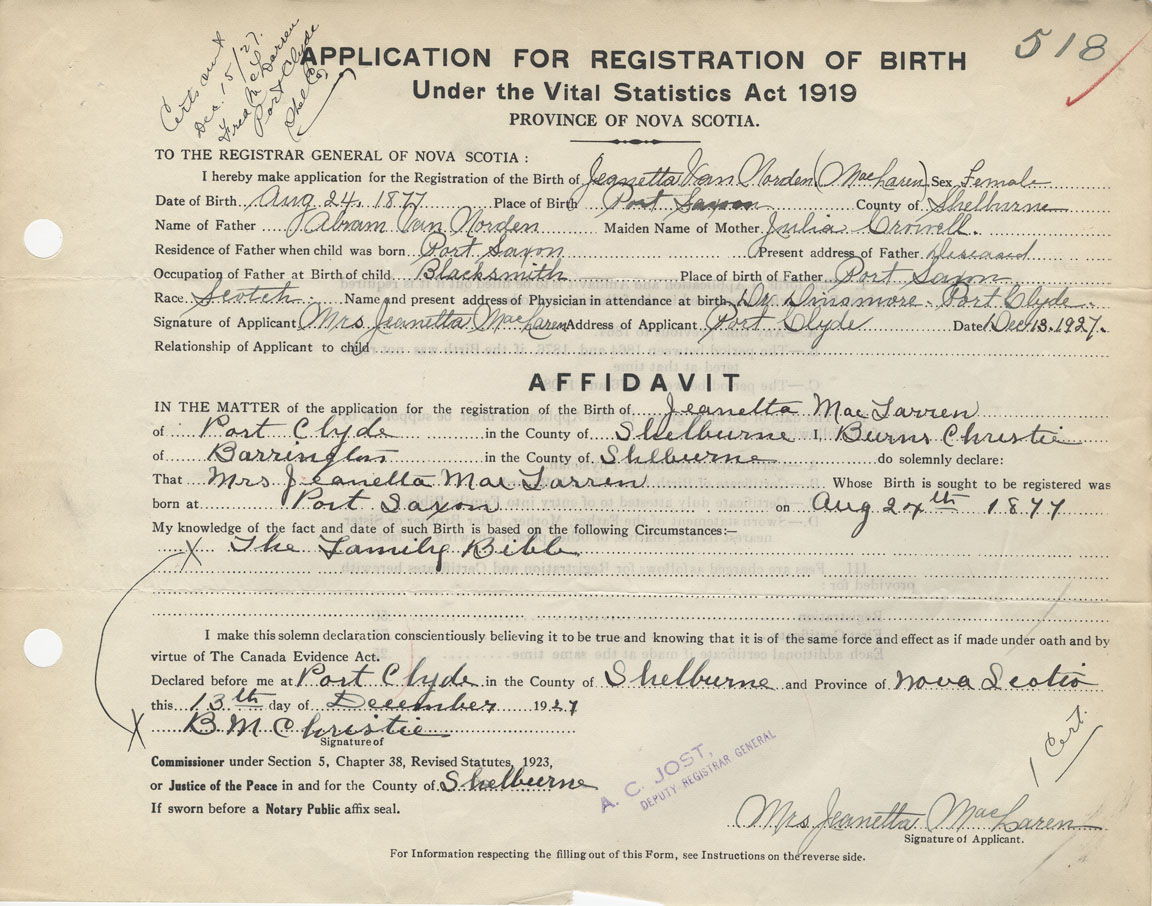 Certs sent
Dec. 15/27.
Fred McLarren
Port Clyde
Shel Co
518
APPLICATION FOR REGISTRATION OF BIRTH
Under the Vital Statistics Act 1919
PROVINCE OF NOVA SCOTIA.
TO THE REGISTRAR GENERAL OF NOVA SCOTIA :
I hereby make application for the Registration of the Birth of Jeanetta Van Norden (MacLaren) Sex Female
Date of Birth Aug. 24. 1877 Place of Birth Port Saxon County of Shelburne
Name of Father Abram Van Norden Maiden Name of Mother Julia Crowell.
Residence of Father when child was born Port Saxon Present address of Father Diseased
Occupation of Father at Birth of child Blacksmith Place of birth of Father Port Saxon
Race. Scotch Name and present address of Physician in attendance at birth Dr Dinsmore. Port Clyde
Signature of Applicant Mrs Jeanetta MacLaren Address of Applicant Port Clyde Date Dec 13. 1927.
Relationship of Applicant to child
AFFIDAVIT
IN THE MATTER of the application for the registration of the Birth of Jeanetta MacLarren
of Port Clyde in the County of Shelburne I, Burns Christie
of Barrington in the County of Shelburne do solemnly declare:
That Mrs Jeanetta MacLarren Whose Birth is sought to be registered was
born at Port Saxon on Aug 24th 1877
My knowledge of the fact and date of such Birth is based on the following Circumstances:—
X The Family Bible
I make this solemn declaration conscientiously believing it to be true and knowing that it is of the same force and effect as if made under oath and by
virtue of The Canada Evidence Act.
Declared before me at Port Clyde in the County of Shelburne and Province of Nova Scotia
this 13th day of December 1927
X B M Christie
Signature of
Commissioner under Section 5, Chapter 38, Revised Statutes, 1923,
or Justice of the Peace in and for the County of Shelburne
If sworn before a Notary Public affix seal.
A. C. JOST,
DEPUTY REGISTRAR GENERAL
1 Cert.
Mrs Jeanetta MacLaren
Signature of Applicant.
For Information respecting the filling out of this Form, see Instructions on the reverse side.